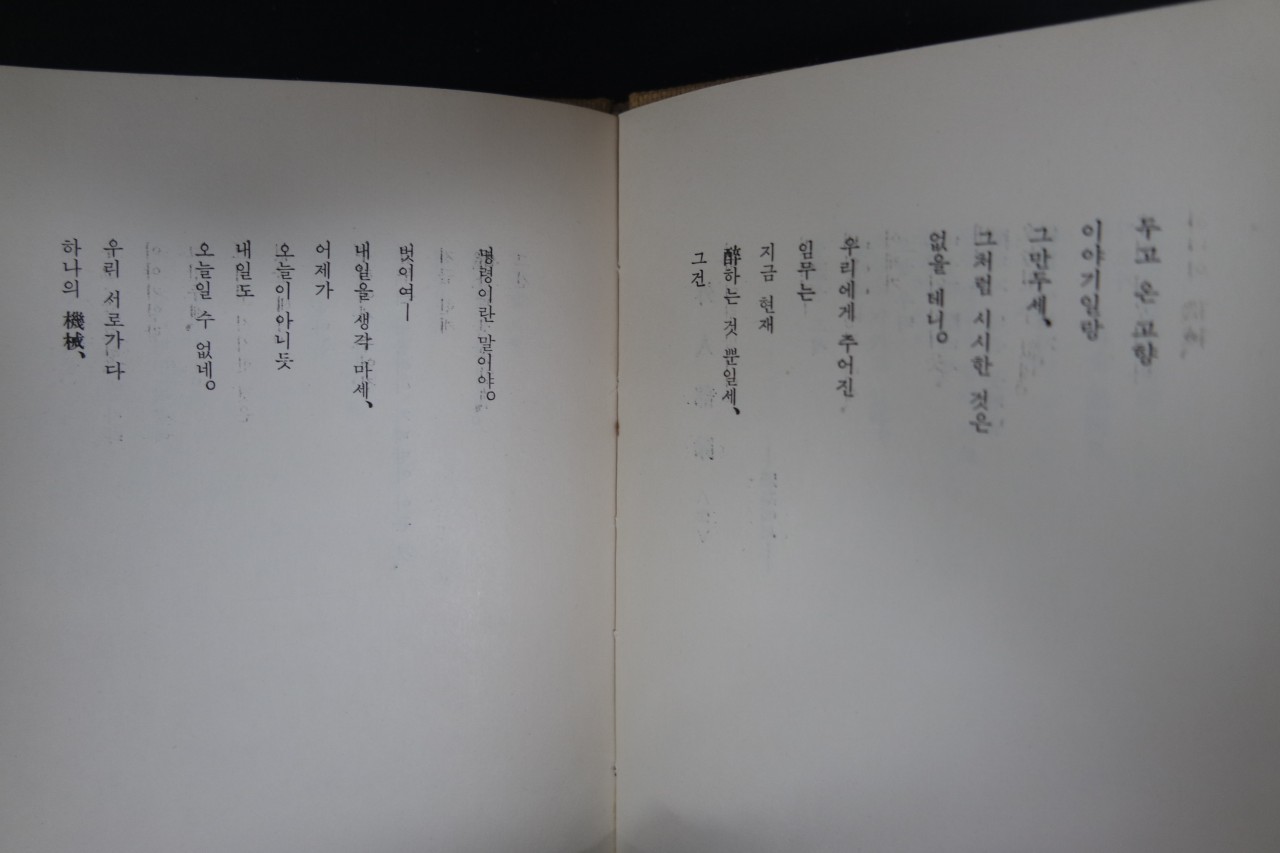 두고 온 고향
이야기일랑
그만두세、
그처럼 시시한 것은
없을 테니。
우리에게 주어진
임무는
지금 현재
醉하는 것 뿐일세、
그건
명령이란 말이야。
벗이여—
내일을 생각 마세、
어제가
오늘이 아니듯
내일도
오늘일 수 없네。
우리 서로가 다
하나의 機械、